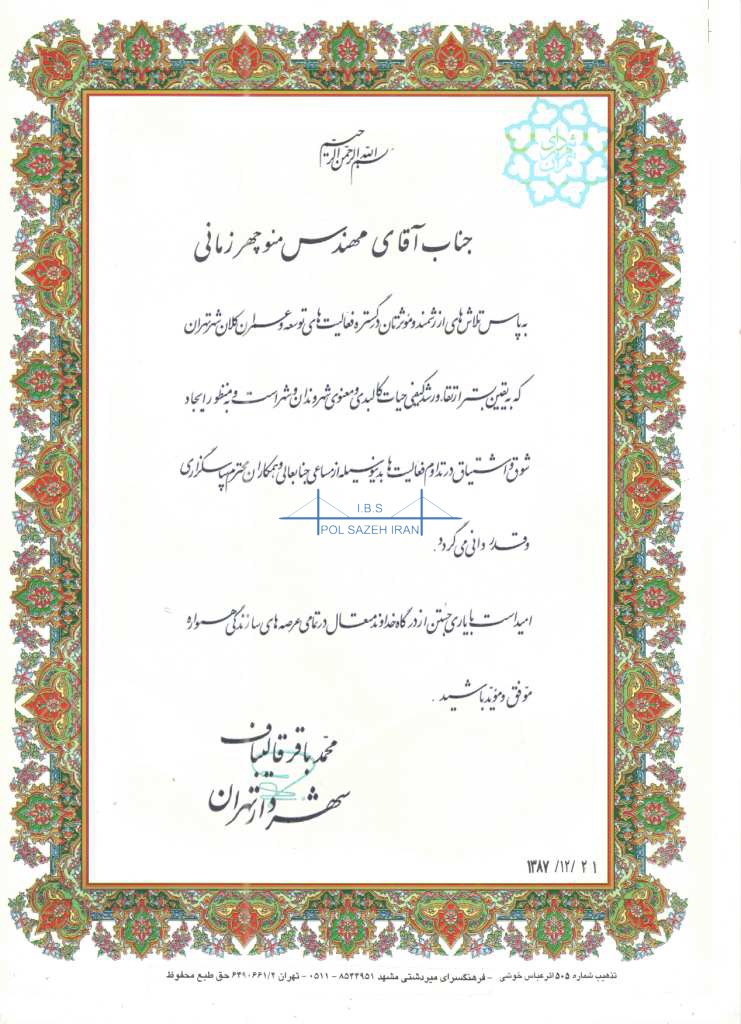 بسم الله الرحمن الرحیم
شهرداری تهران
جناب آقای مهندس منوچهر زمانی
به پاس تلاش های ارزشمند و موثرتان در گستره فعالیت های توسعه و عمران کلان شهر تهران
که به یقین بستر ارتقاء و رشد کیفی حیات کالبدی و معنوی شهروندان و شهر است و به منظور ایجاد
شوق و اشتیاق در تداوم فعالیت ها بدینوسیله از مساعی جنابعالی و همکاران محترم سپاسگزاری
I.B.S
POL SAZEH IRAN
و قدردانی می گردد .
امید است با یاری جستن از درگاه خداوند متعال در تمامی عرصه های سازندگی همواره
موفق و موید باشید .
محمد باقر قالیباف
شهردار تهران
۱۳۸۷ /۱۲/ ۲۱
تذهیب شماره ۵۰۵ اثر عباس خوشی - فرهنگسرای میردشتی مشهد ۸۵۴۴۹۵۱ - ۰۵۱۱ - تهران ۶۴۹۰۶۶۱/۲ حق طبع محفوظ